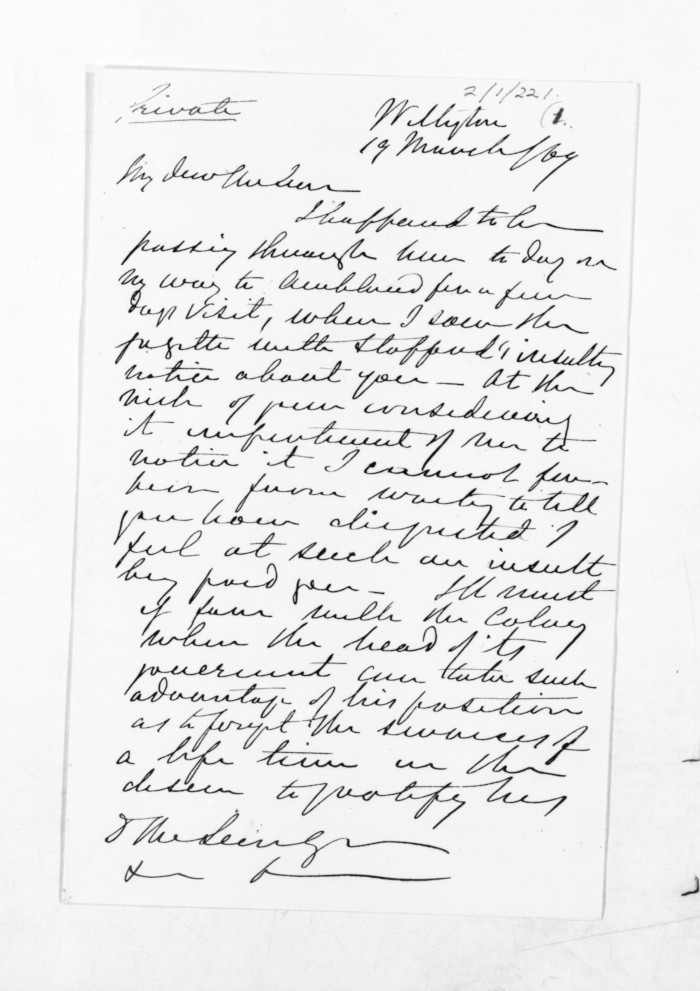 2/1/221.
Private
Wellington (1.
19 March /69
My dear McLean
I happened to be
passing through here to day on
my way to Auckland for a few
days visit, when I saw the
gazette with Stafford's insulting
notice about you — At the
risk of your considering
it impertinent of me to
notice it I cannot for-
bear from writing to tell
you how disgusted I
feel at such an insult
being paid you — Ill must
it fare with the Colony
when the head of its
government can take such
advantage of his position
as to forget the services of
a life time in the
desire to gratify his
D McLean Esq